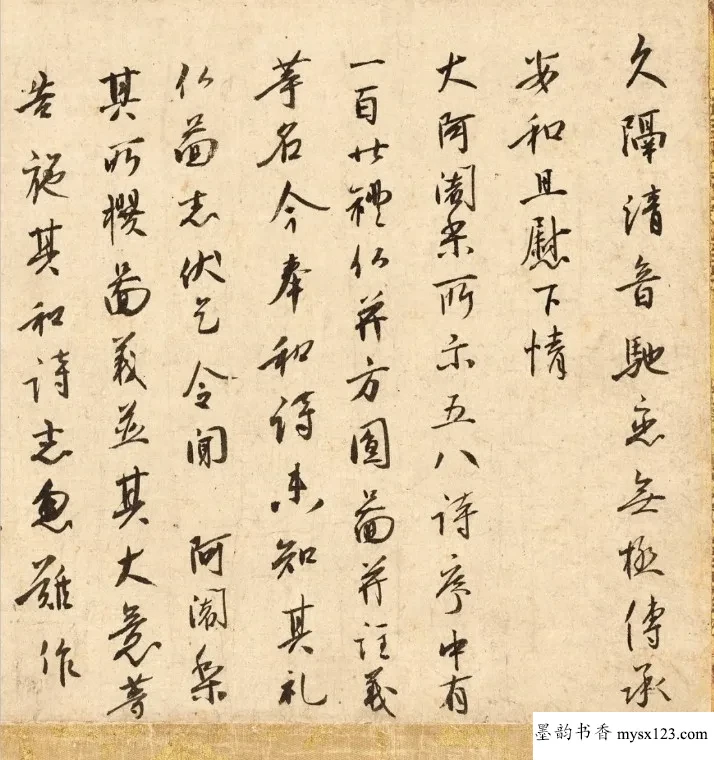 久隔清音馳恋無極傳承
安和且慰下情
大阿闍梨所示五八詩序中有
一百廿礼仏并方圓啚并註義
等名今奉和詩未知其礼
仏啚志伏乞令聞 阿闍梨
其所撰啚義並其大意等
告施其和詩忽難作
墨韵书香 mysx123.com